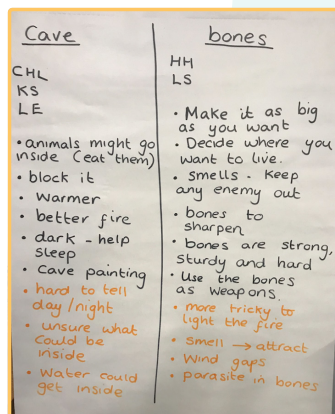 Cave
CHL
KS
LE
• animals might go
inside (eat them)
• block it
• warmer
• better fire
• dark - help
sleep
• Cave painting
• hard to tell
day/night
• unsure what
could be
inside
• Water could
get inside
bones
HH
LS
• Make it as big
as you want
• Decide where you
want to live.
• smells - keep
any enemy out
• bones to
sharpen
• bones are strong,
sturdy and hard
• Use the bones
as weapons.
• more tricky to
light the fire
• smell → attract
• Wind gaps
• parasite in bones